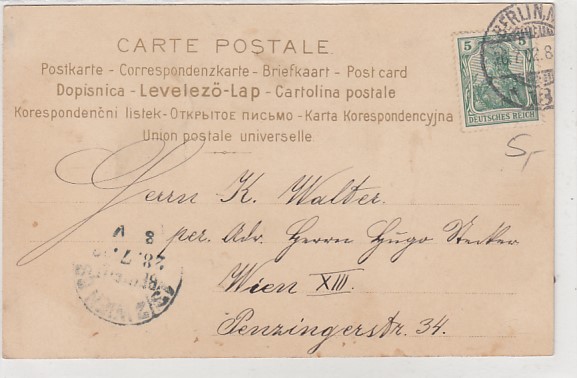 CARTE POSTALE.
Postkarte - Correspondenzkarte - Briefkaart - Post card
Dopisnica - Levelező-Lap - Cartolina postale
Korespondenční listek - Открытое письмо - Karta Korespondencyjna
Union postale universelle.
5 5
DEUTSCHES REICH
BERLIN, N.
5,-
Herrn K. Walter.
per. Adr. Herrn Hugo Stecker
Wien XIII.
Penzingerstr. 34.
8 V
28.7.
WIEN